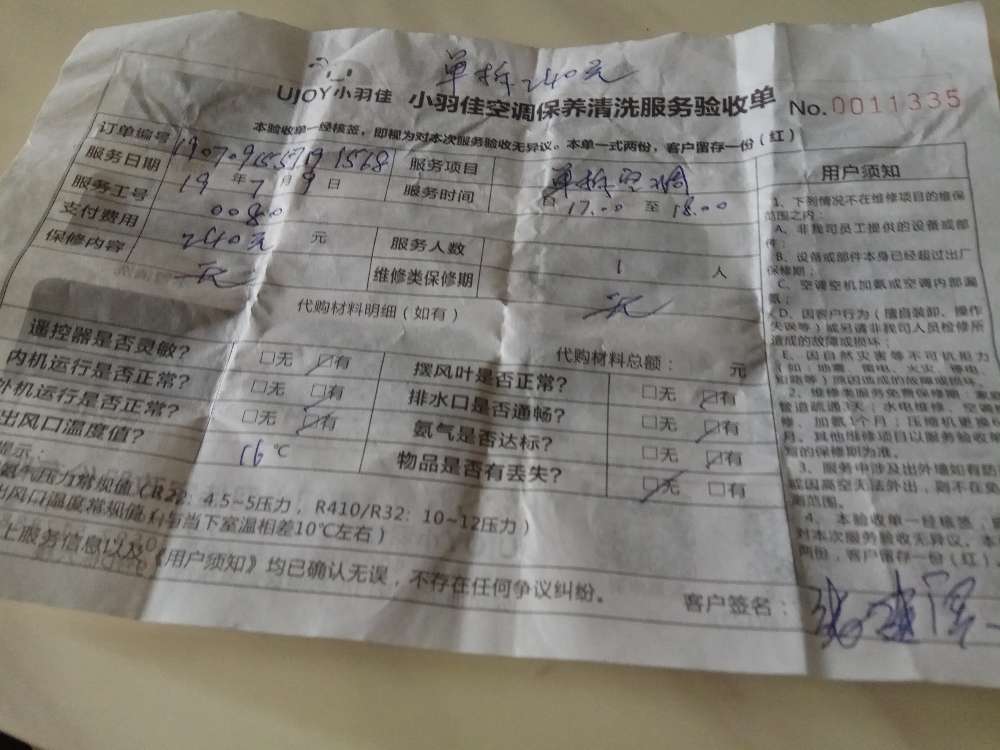 单拆240元
UJOY小羽佳 小羽佳空调保养清洗服务验收单 No.0011335
本验收单一经核签，即视为对本次服务验收无异议。本单一式两份，客户留存一份（红）
订单编号 服务项目 单拆空调
服务日期 19年7月9日 服务时间 自17.00至18.00
服务工号 0080
支付费用 240元 元 服务人数 1 人
保修内容 无 维修类保修期 无
代购材料明细（如有） 代购材料总额： 元
遥控器是否灵敏？ □无 ☑有 摆风叶是否正常？ □无 ☑有
内机运行是否正常？ □无 ☑有 排水口是否通畅？ □无 ☑有
外机运行是否正常？ □无 ☑有 氨气是否达标？ □无 ☑有
出风口温度值？ 16℃ 物品是否有丢失？ ☑无 □有
提示：
氨气压力常规值（R22：4.5~5压力，R410/R32：10~12压力）
出风口温度常规值 与当下室温相差10℃左右）
上服务信息以及《用户须知》均已确认无误，不存在任何争议纠纷。
客户签名：
用户须知
1、下列情况不在维修项目的维保
范围之内：
A、非我司员工提供的设备或部
件；
B、设备或部件本身已经超过出厂
保修期；
C、空调空机加氨或空调内部漏
氨；
D、因客户行为（擅自装卸、操作
失误等）或另请非我司人员检修所
造成的故障或损坏；
E、因自然灾害等不可抗拒力
（如：地震、雷电、火灾、停电
短路等）原因造成的故障或损坏。
2、维修类服务免费保修期：家庭
管道疏通3天；水电维修、空调
修、加氨1个月；压缩机更换
月。其他维修项目以服务验收单
写的保修期为准。
3、服务中涉及出外墙如有防
或因高空无法外出，则不在免
测范围。
4、本验收单一经核签，
对本次服务验收无异议。本
两份，客户留存一份（红）。